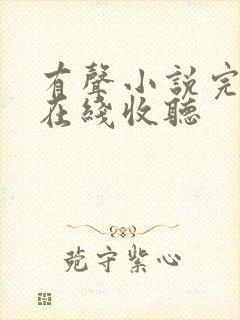 有聲小說完
在綫收聽
菀守紫心